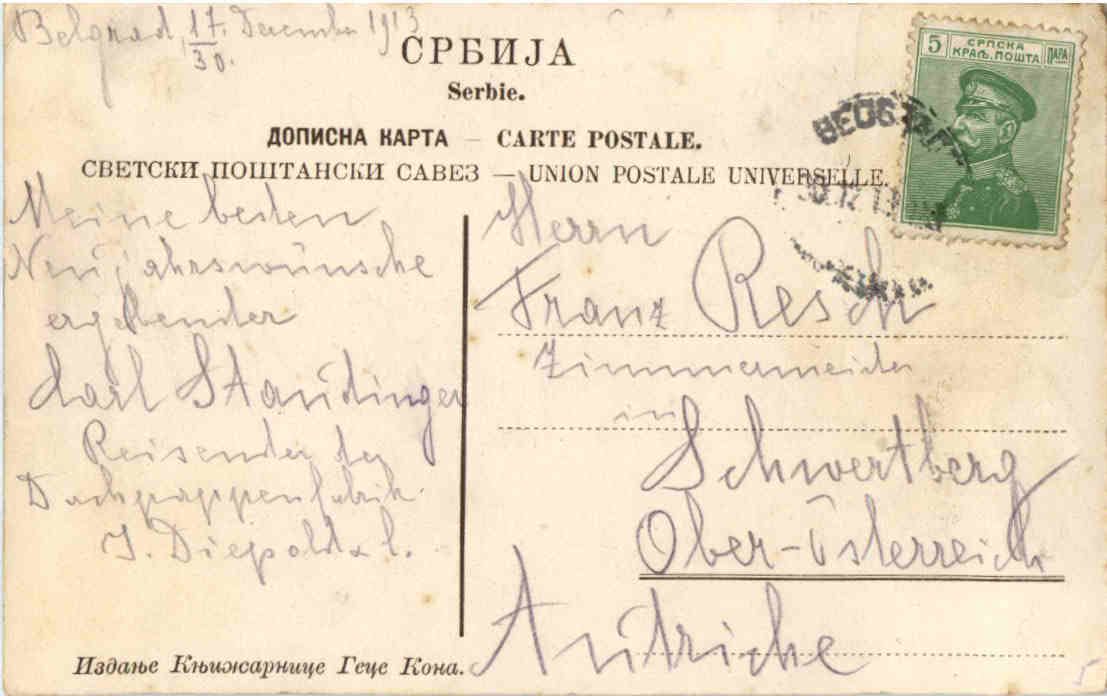 Belgrad, 17./30. Dezember 1913
СРБИЈА
Serbie.
ДОПИСНА КАРТА – CARTE POSTALE.
СВЕТСКИ ПОШТАНСКИ САВЕЗ — UNION POSTALE UNIVERSELLE.
5 СРПСКА КРАЉ. ПОШТА ПАРА
Meine besten
Neujahrswünsche
ergebender
Carl Staudinger
Reisender der
Dachpappenfabrik
J. Diepold &
Herrn
Franz Resch
Zimmermeister
in
Schwertberg
Ober-Österreich
Autriche
Издање Књижарнице Геце Кона.
5